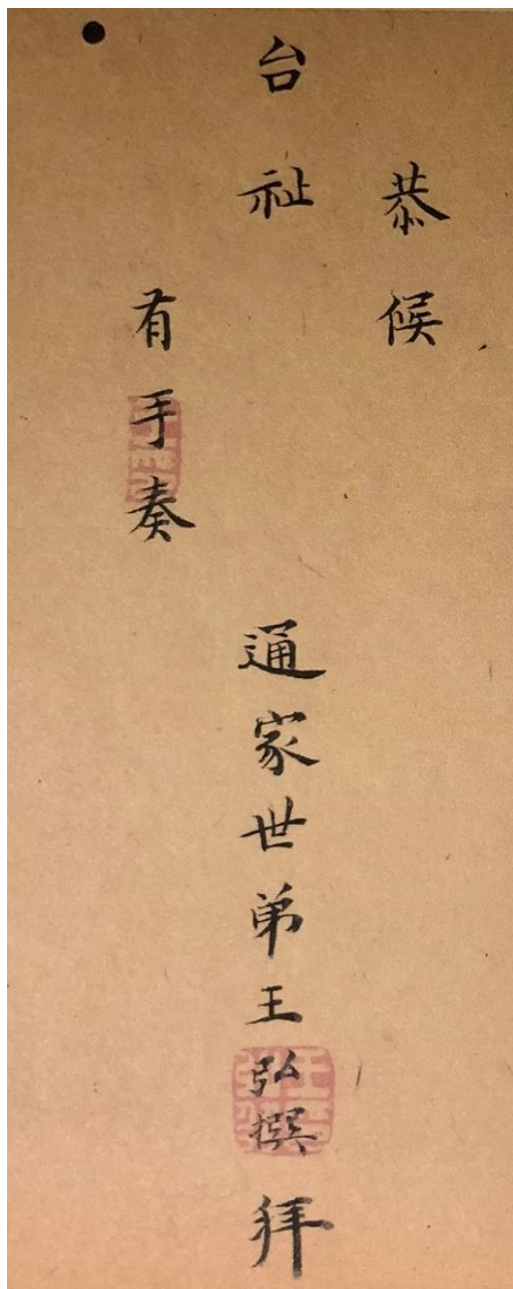 恭候
台祉
通家世弟王弘撰拜
有手奏